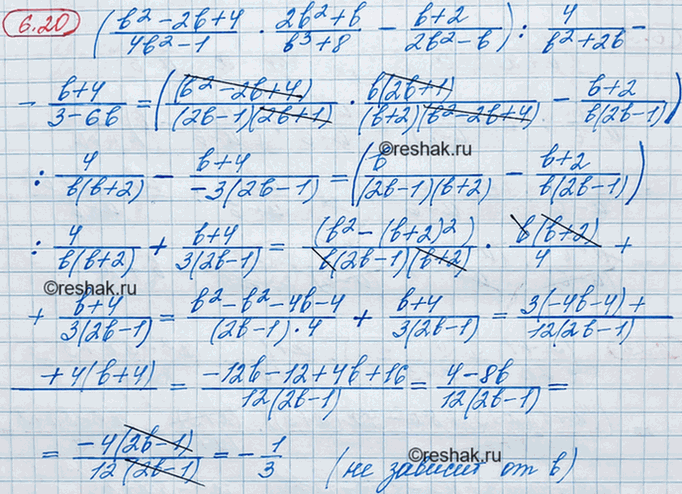 6.20 ( (b² - 2b + 4)/(4b² - 1) · (2b² + b)/(b³ + 8) - (b + 2)/(2b² - b) ) : 4/(b² + 2b) -
- (b + 4)/(3 - 6b) = ( (b² - 2b + 4)/((2b - 1)(2b + 1)) · b(2b + 1)/((b + 2)(b² - 2b + 4)) - (b + 2)/(b(2b - 1)) )
: 4/(b(b + 2)) - (b + 4)/(-3(2b - 1)) = ( b/((2b - 1)(b + 2)) - (b + 2)/(b(2b - 1)) )
©reshak.ru
: 4/(b(b + 2)) + (b + 4)/(3(2b - 1)) = (b² - (b + 2)²)/(b(2b - 1)(b + 2)) · b(b + 2)/4 +
©reshak.ru
+ (b + 4)/(3(2b - 1)) = (b² - b² - 4b - 4)/((2b - 1) · 4) + (b + 4)/(3(2b - 1)) = (3(-4b - 4) +)/(12(2b - 1))
(+ 4(b + 4))/ = (-12b - 12 + 4b + 16)/(12(2b - 1)) = (4 - 8b)/(12(2b - 1)) =
©reshak.ru
= (-4(2b - 1))/(12(2b - 1)) = - 1/3 (не зависит от b)